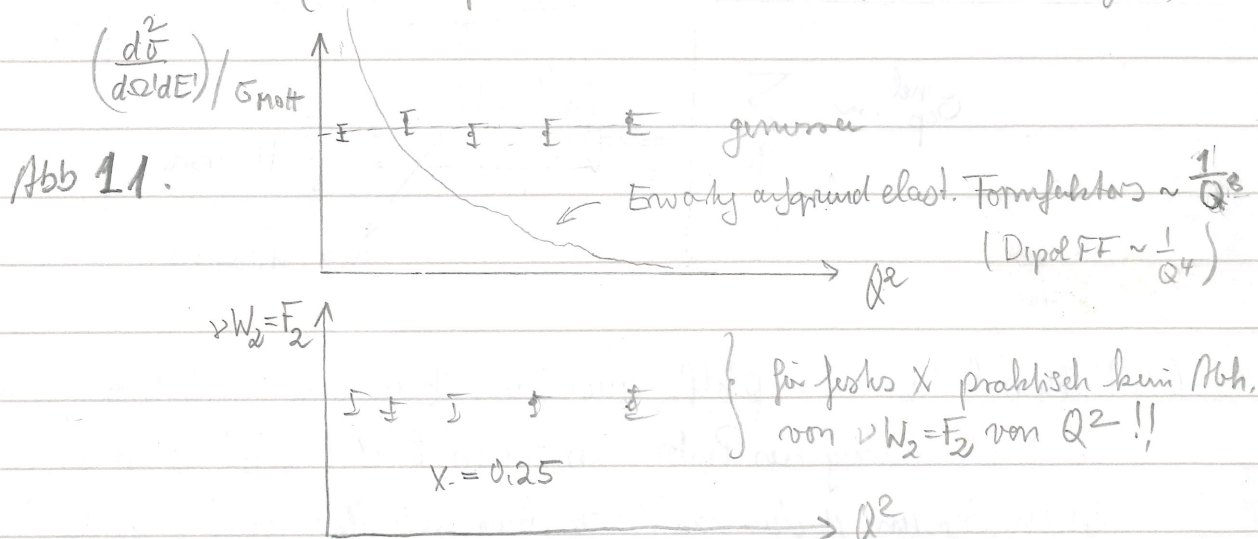 (d²σ / dΩ'dE') / σ_Mott
gemessen
Abb 11.
Erwartg aufgrund elast. Formfaktors ~ 1/Q⁸
(Dipol FF ~ 1/Q⁴)
Q²
νW₂=F₂
für festes X praktisch kein Abh.
von νW₂=F₂ von Q² !!
X = 0.25
Q²